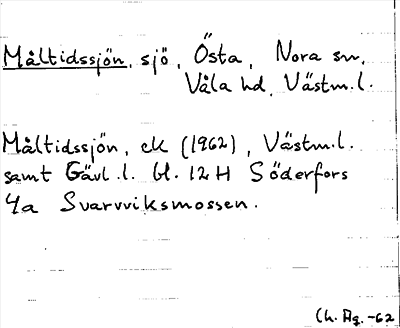 Måltidssjön, sjö, Östa, Nora sn,
Våla hd, Västm.l.
Måltidssjön, ek (1962), Västm.l.
samt Gävl.l. bl. 12H Söderfors
4a Svarvviksmossen.
Ch. Hg. -62